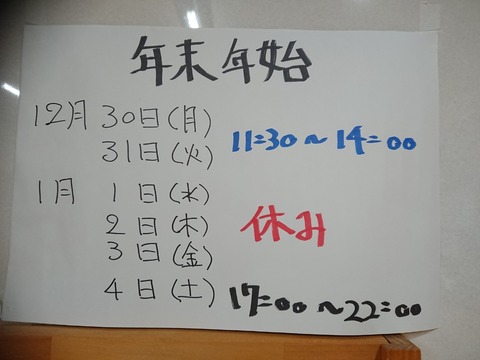 年末年始
12月 30日(月)
31日(火) 11:30～14:00
1月 1日(水)
2日(木) 休み
3日(金)
4日(土) 17:00～22:00